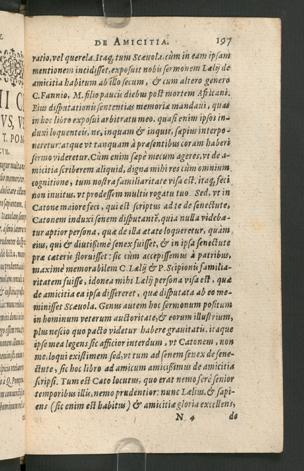 DE AMICITIA. 197
ratio, vel querela. Itaq; tum Scæuola. cùm in eam ipsam
mentionem incidisset, exposuit nobis sermonem Lælij de
amicitia habitum ab illo secum, & cum altero genero
C. Fannio, M. filio paucis diebus post mortem Africani.
Eius disputationis sententias memoriæ mandaui, quas
in hoc libro exposui arbitratu meo. quasi enim ipsos in-
duxi loquenteis, ne, inquam & inquit, sæpius interpo-
neretur, atque vt tanquam à præsentibus coram haberi
sermo videretur. Cùm enim sæpe mecum ageres, vt de a-
micitia scriberem aliquid, digna mihi res cùm omnium
cognitione, tum nostra familiaritate visa est. itaq; feci
non inuitus, vt prodessem multis rogatu tuo. Sed, vt in
Catone maiore feci, qui est scriptus ad te de senectute,
Catonem induxi senem disputantē, quia nulla videba-
tur aptior persona, quæ de illa ætate loqueretur, quàm
eius, qui & diutissimè senex fuisset, & in ipsa senectute
præ cæteris floruisset: sic cùm accepissemus à patribus,
maximè memorabilem C. Lælij & P. Scipionis familia-
ritatem fuisse, idonea mihi Lælij persona visa est, quæ
de amicitia ea ipsa dissereret, quæ disputata ab eo me-
minisset Scæuola. Genus autem hoc sermonum positum
in hominum veterum auctoritate, & eorum illustrium,
plus nescio quo pacto videtur habere grauitatis. itaque
ipse mea legens sic afficior interdum, vt Catonem, non
me, loqui existimem. sed, vt tum ad senem senex de sene-
ctute, sic hoc libro ad amicum amicissimus de amicitia
scripsi. Tum est Cato locutus, quo erat nemo ferè senior
temporibus illis, nemo prudentior: nunc Lælius, & sapi-
ens (sic enim est habitus) & amicitiæ gloria excellens,
N 4 de